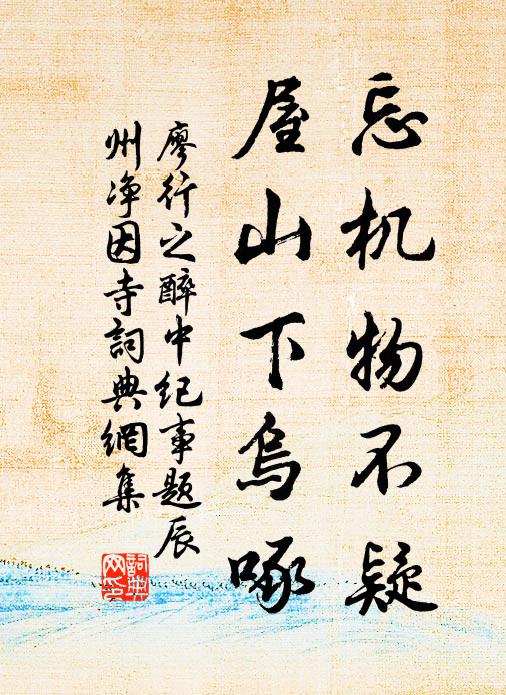 忘机物不疑
屋山下乌啄
廖行之醉中纪事题辰
州净因寺詞典網集
詞典